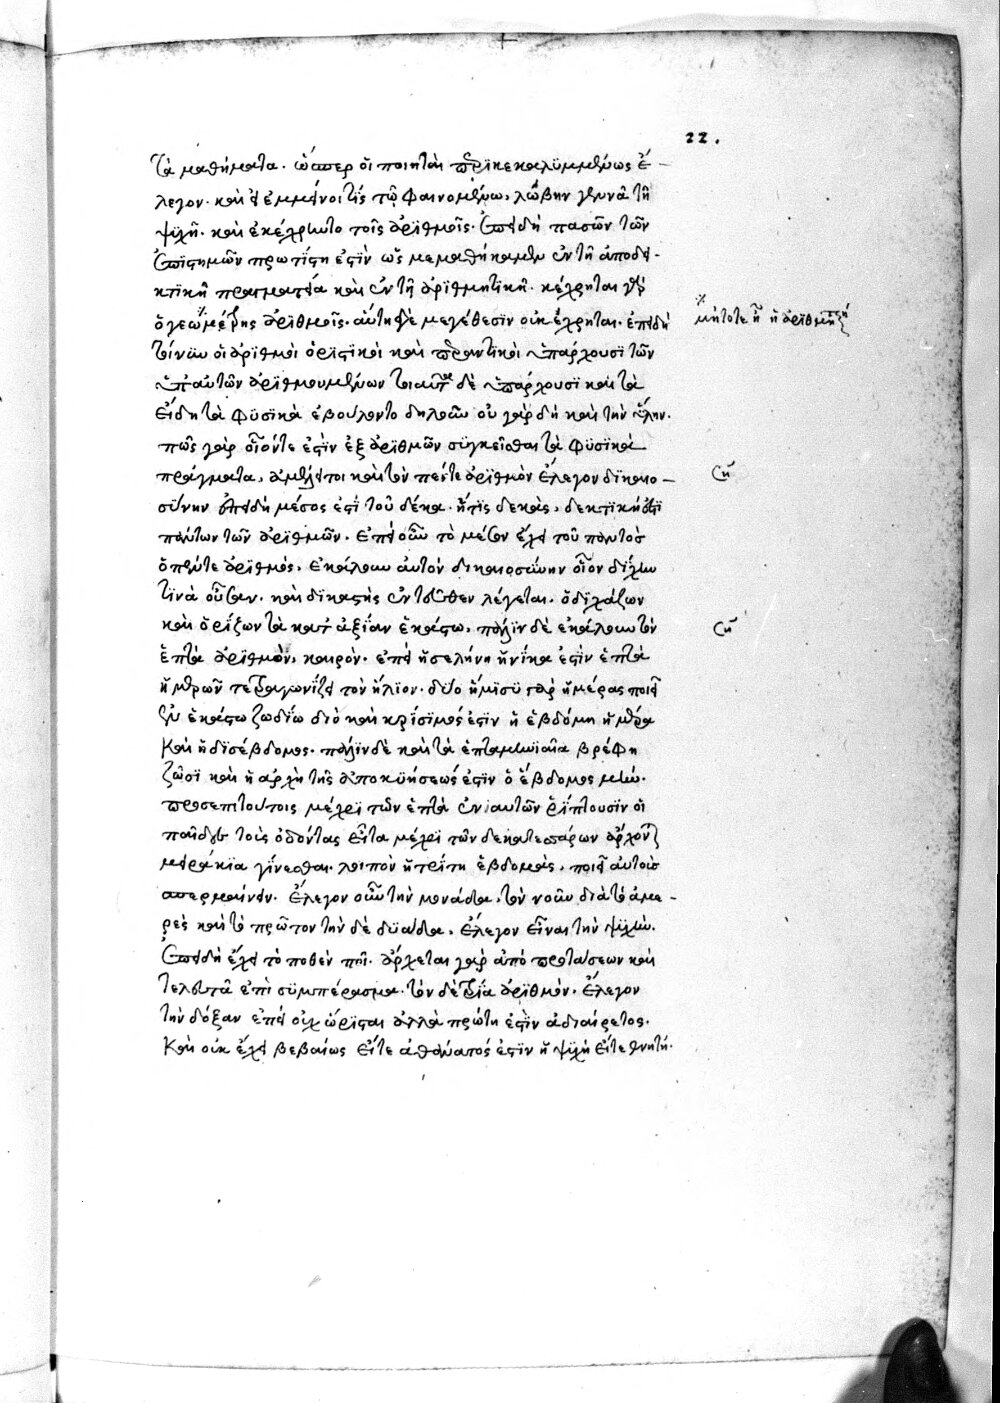 22.
τὰ μαθήματα. ὥσπερ οἱ ποιηταὶ περικεκαλυμμένως ἔ-
λεγον. καὶ ἐμμένοι τίς τῷ φαινομένῳ, λώβην γεννᾷ τῇ
ψυχῇ. καὶ ἐκέχρηντο τοῖς ἀριθμοῖς. ἐπειδὴ πασῶν τῶν
ἐπιστημῶν πρωτίστη ἐστὶν ὡς μεμαθήκαμεν ἐν τῇ ἀποδει-
κτικῇ πραγματείᾳ καὶ ἐν τῇ ἀριθμητικῇ. κέχρηται γὰρ
ὁ γεωμέτρης ἀριθμοῖς. αὕτη δὲ μεγέθεσιν οὐ κέχρηται. ἐπειδὴ
τοίνυν οἱ ἀριθμοὶ ὁριστικοὶ καὶ περαντικοὶ ὑπάρχουσι τῶν
ὑπ' αὐτῶν ἀριθμουμένων τοιαῦτα δὲ ὑπάρχουσι καὶ τὰ
εἴδη τὰ φυσικὰ ἐβούλοντο δηλοῦν οὐ γὰρ δὴ καὶ τὴν ὕλην.
πῶς γὰρ οἷόν τε ἐστὶν ἐξ ἀριθμῶν συγκεῖσθαι τὰ φυσικὰ
πράγματα, ἀμέλει τοι καὶ τὸν πέντε ἀριθμὸν ἔλεγον δικαιο-
σύνην ἐπειδὴ μέσος ἐστὶ τοῦ δέκα. ἥτις δεκὰς, δεκτική ἐστι
πάντων τῶν ἀριθμῶν. ἐπεὶ οὖν τὸ μέσον ἔχει τοῦ παντὸς
ὁ πέντε ἀριθμὸς, ἐκάλουν αὐτὸν δικαιοσύνην οἷον δίχην
τινὰ οὖσαν. καὶ δικαστὴς ἐντεῦθεν λέγεται. ὁ διχάζων
καὶ ὁρίζων τὰ κατ' ἀξίαν ἑκάστῳ, πάλιν δὲ ἐκάλουν τὸν
ἑπτὰ ἀριθμὸν, καιρόν. ἐπεὶ ἡ σελήνη ἡνίκα ἐστὶν ἑπτὰ
ἡμερῶν τετραγωνίζει τὸν ἥλιον. δύο ἥμισυ γὰρ ἡμέρας ποιεῖ
ἐν ἑκάστῳ ζωδίῳ διὸ καὶ κρίσιμός ἐστιν ἡ ἑβδόμη ἡμέρα
καὶ ἡ δισέβδομος. πάλιν δὲ καὶ τὰ ἑπταμηνιαῖα βρέφη
ζῶσι καὶ ἡ ἀρχὴ τῆς ἀποκυήσεώς ἐστιν ὁ ἕβδομος μήν.
πρὸς ἐπὶ τούτοις μέχρι τῶν ἑπτὰ ἐνιαυτῶν ῥίπτουσιν οἱ
παῖδες τοὺς ὀδόντας εἶτα μέχρι τῶν δεκατεσσάρων ἄρχονται
μειράκια γίνεσθαι. λοιπὸν ἡ τρίτη ἑβδομὰς, ποιεῖ αὐτοὺς
σπερμαίνειν. ἔλεγον οὖν τὴν μονάδα, τὸν νοῦν διὰ τὸ ἀμε-
ρὲς καὶ τὸ πρῶτον τὴν δὲ δυάδα, ἔλεγον εἶναι τὴν ψυχήν.
ἐπειδὴ ἔχει τὸ ποθὲν ποῖ. ἄρχεται γὰρ ἀπὸ προτάσεων καὶ
τελευτᾷ ἐπὶ συμπέρασμα. τὸν δὲ τρία ἀριθμὸν. ἔλεγον
τὴν δόξαν ἐπεὶ οὐχ ὥρισται ἀλλὰ πρώτη ἐστὶν ἀδιαίρετος.
καὶ οὐκ ἔχει βεβαίως εἴτε ἀθάνατός ἐστιν ἡ ψυχὴ εἴτε θνητή.
μήποτε ἢ ἡ ἀριθμητική
ση
ση